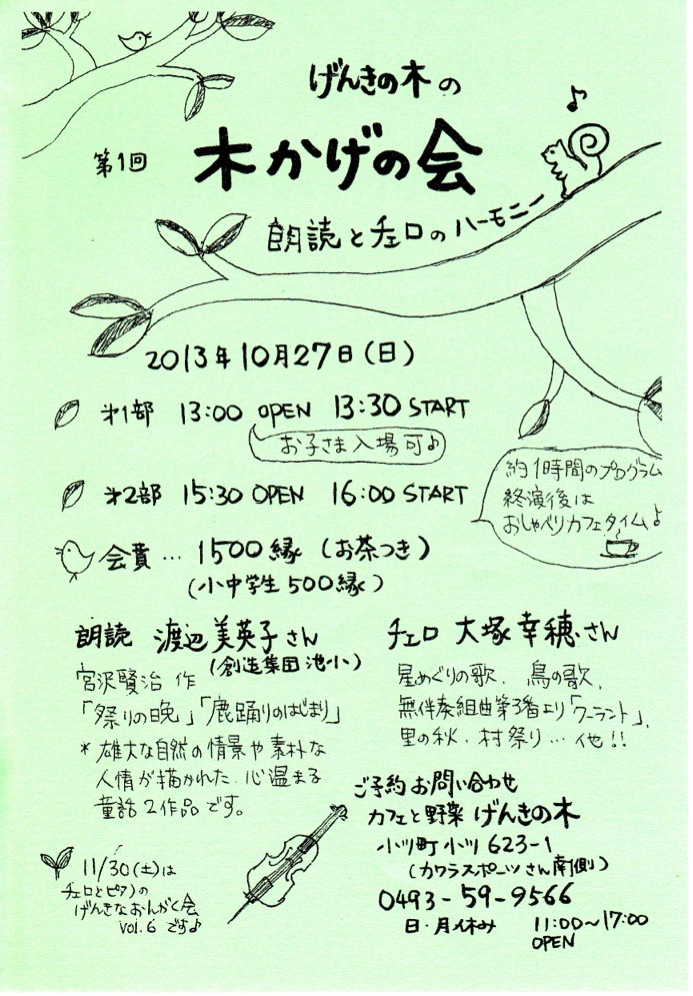 げんきの木の
第1回
木かげの会
朗読とチェロのハーモニー
2013年10月27日(日)
才1部 13:00 OPEN 13:30 START
お子さま入場可♪
才2部 15:30 OPEN 16:00 START
約1時間のプログラム
終演後は
おしゃべりカフェタイム♪
会費… 1500縁 (お茶つき)
(小中学生500縁)
朗読 渡辺美英子さん
(創造集団池小)
宮沢賢治 作
「祭りの晩」「鹿踊りのはじまり」
*雄大な自然の情景や素朴な
人情が描かれた、心温まる
童話2作品です。
チェロ 大塚幸穂さん
星めぐりの歌、鳥の歌、
無伴奏組曲第3番より「クーラント」、
里の秋、村祭り…他!!
ご予約お問い合わせ
カフェと野菜 げんきの木
小川町小川623-1
(カワラスポーツさん南側)
0493-59-9566
日・月休み 11:00~17:00
OPEN
11/30(土)は
チェロとピアノの
げんきなおんがく会
vol.6 です♪